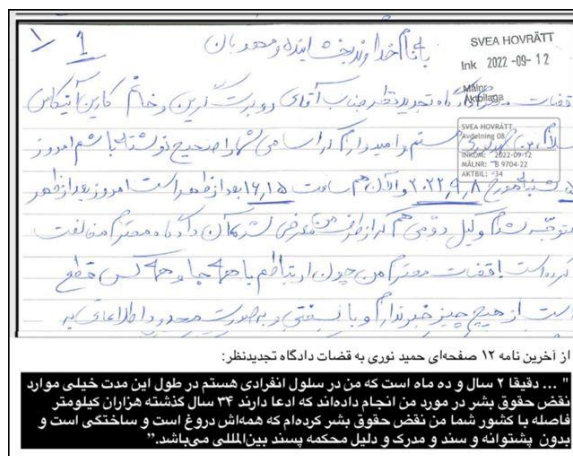 1/1
باسم خداوند بخشاینده و مهربان
SVEA HOVRÄTT
Ink 2022-09-12
Målnr
Aktbilaga
قضات محترم دادگاه تجدید نظر جناب آقای روبرت گرین و خانم کارین آنیکاس
SVEA HOVRÄTT
Avdelning 08
INKOM: 2022-09-12
MÅLNR: B 9704-22
AKTBIL: 34
سلام، من حمید نوری هستم و امیدوارم که اسامی شما را صحیح نوشته باشم امروز
شنبه مورخ ۲۰۲۲٫۹٫۸ و الان هم ساعت ۱۶٫۱۵ بعد از ظهر است امروز بعد از ظهر
متوجه شدم وکیل دومی هم که از طرف من معرفی شد دادگاه محترم مخالفت
کرده است! قضات محترم من چون ارتباطم با همه جا و همه کس قطع
است از هیچ چیز خبر ندارم و با سختی و به صورت محدود اطلاعاتی به
از آخرین نامه ۱۲ صفحه‌ای حمید نوری به قضات دادگاه تجدیدنظر:
" ... دقیقا ۲ سال و ده ماه است که من در سلول انفرادی هستم در طول این مدت خیلی موارد
نقض حقوق بشر در مورد من انجام داده‌اند که ادعا دارند ۳۴ سال گذشته هزاران کیلومتر
فاصله با کشور شما من نقض حقوق بشر کرده‌ام که همه‌اش دروغ است و ساختگی است و
بدون پشتوانه و سند و مدرک و دلیل محکمه پسند بین‌المللی می‌باشد."